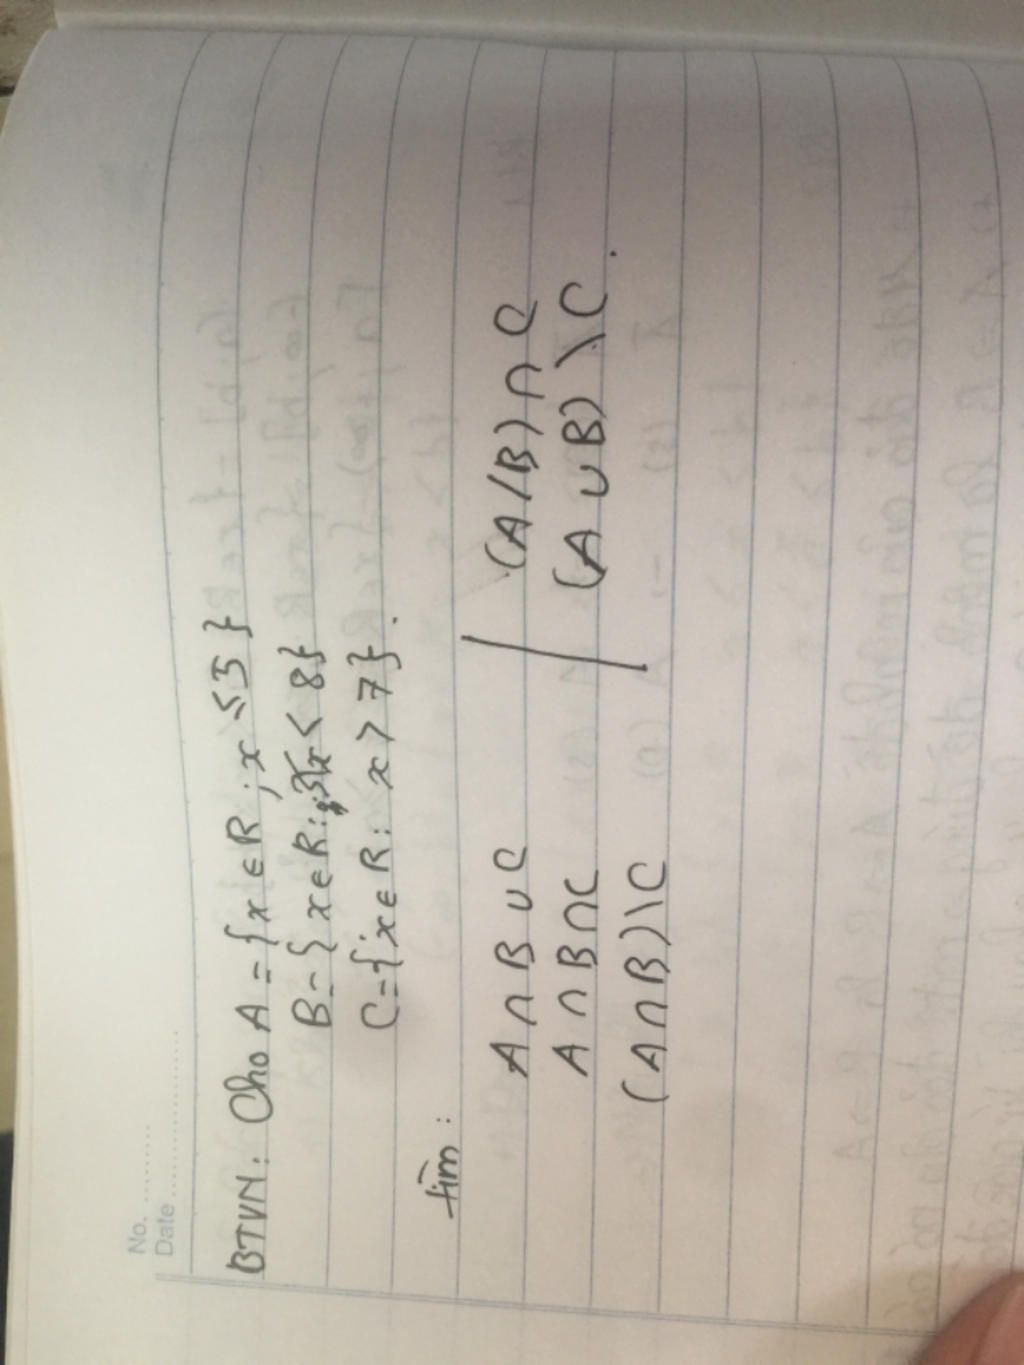 No. ..........
Date ....................
BTVN: Cho A = {x ∈ R ; x ≤ 5}
B = {x ∈ R: x < 8}
C = {x ∈ R: x > 7}.
tìm:
A ∩ B ∪ C
A ∩ B ∩ C
(A ∩ B) \ C
(A / B) ∩ C
(A ∪ B) \ C.